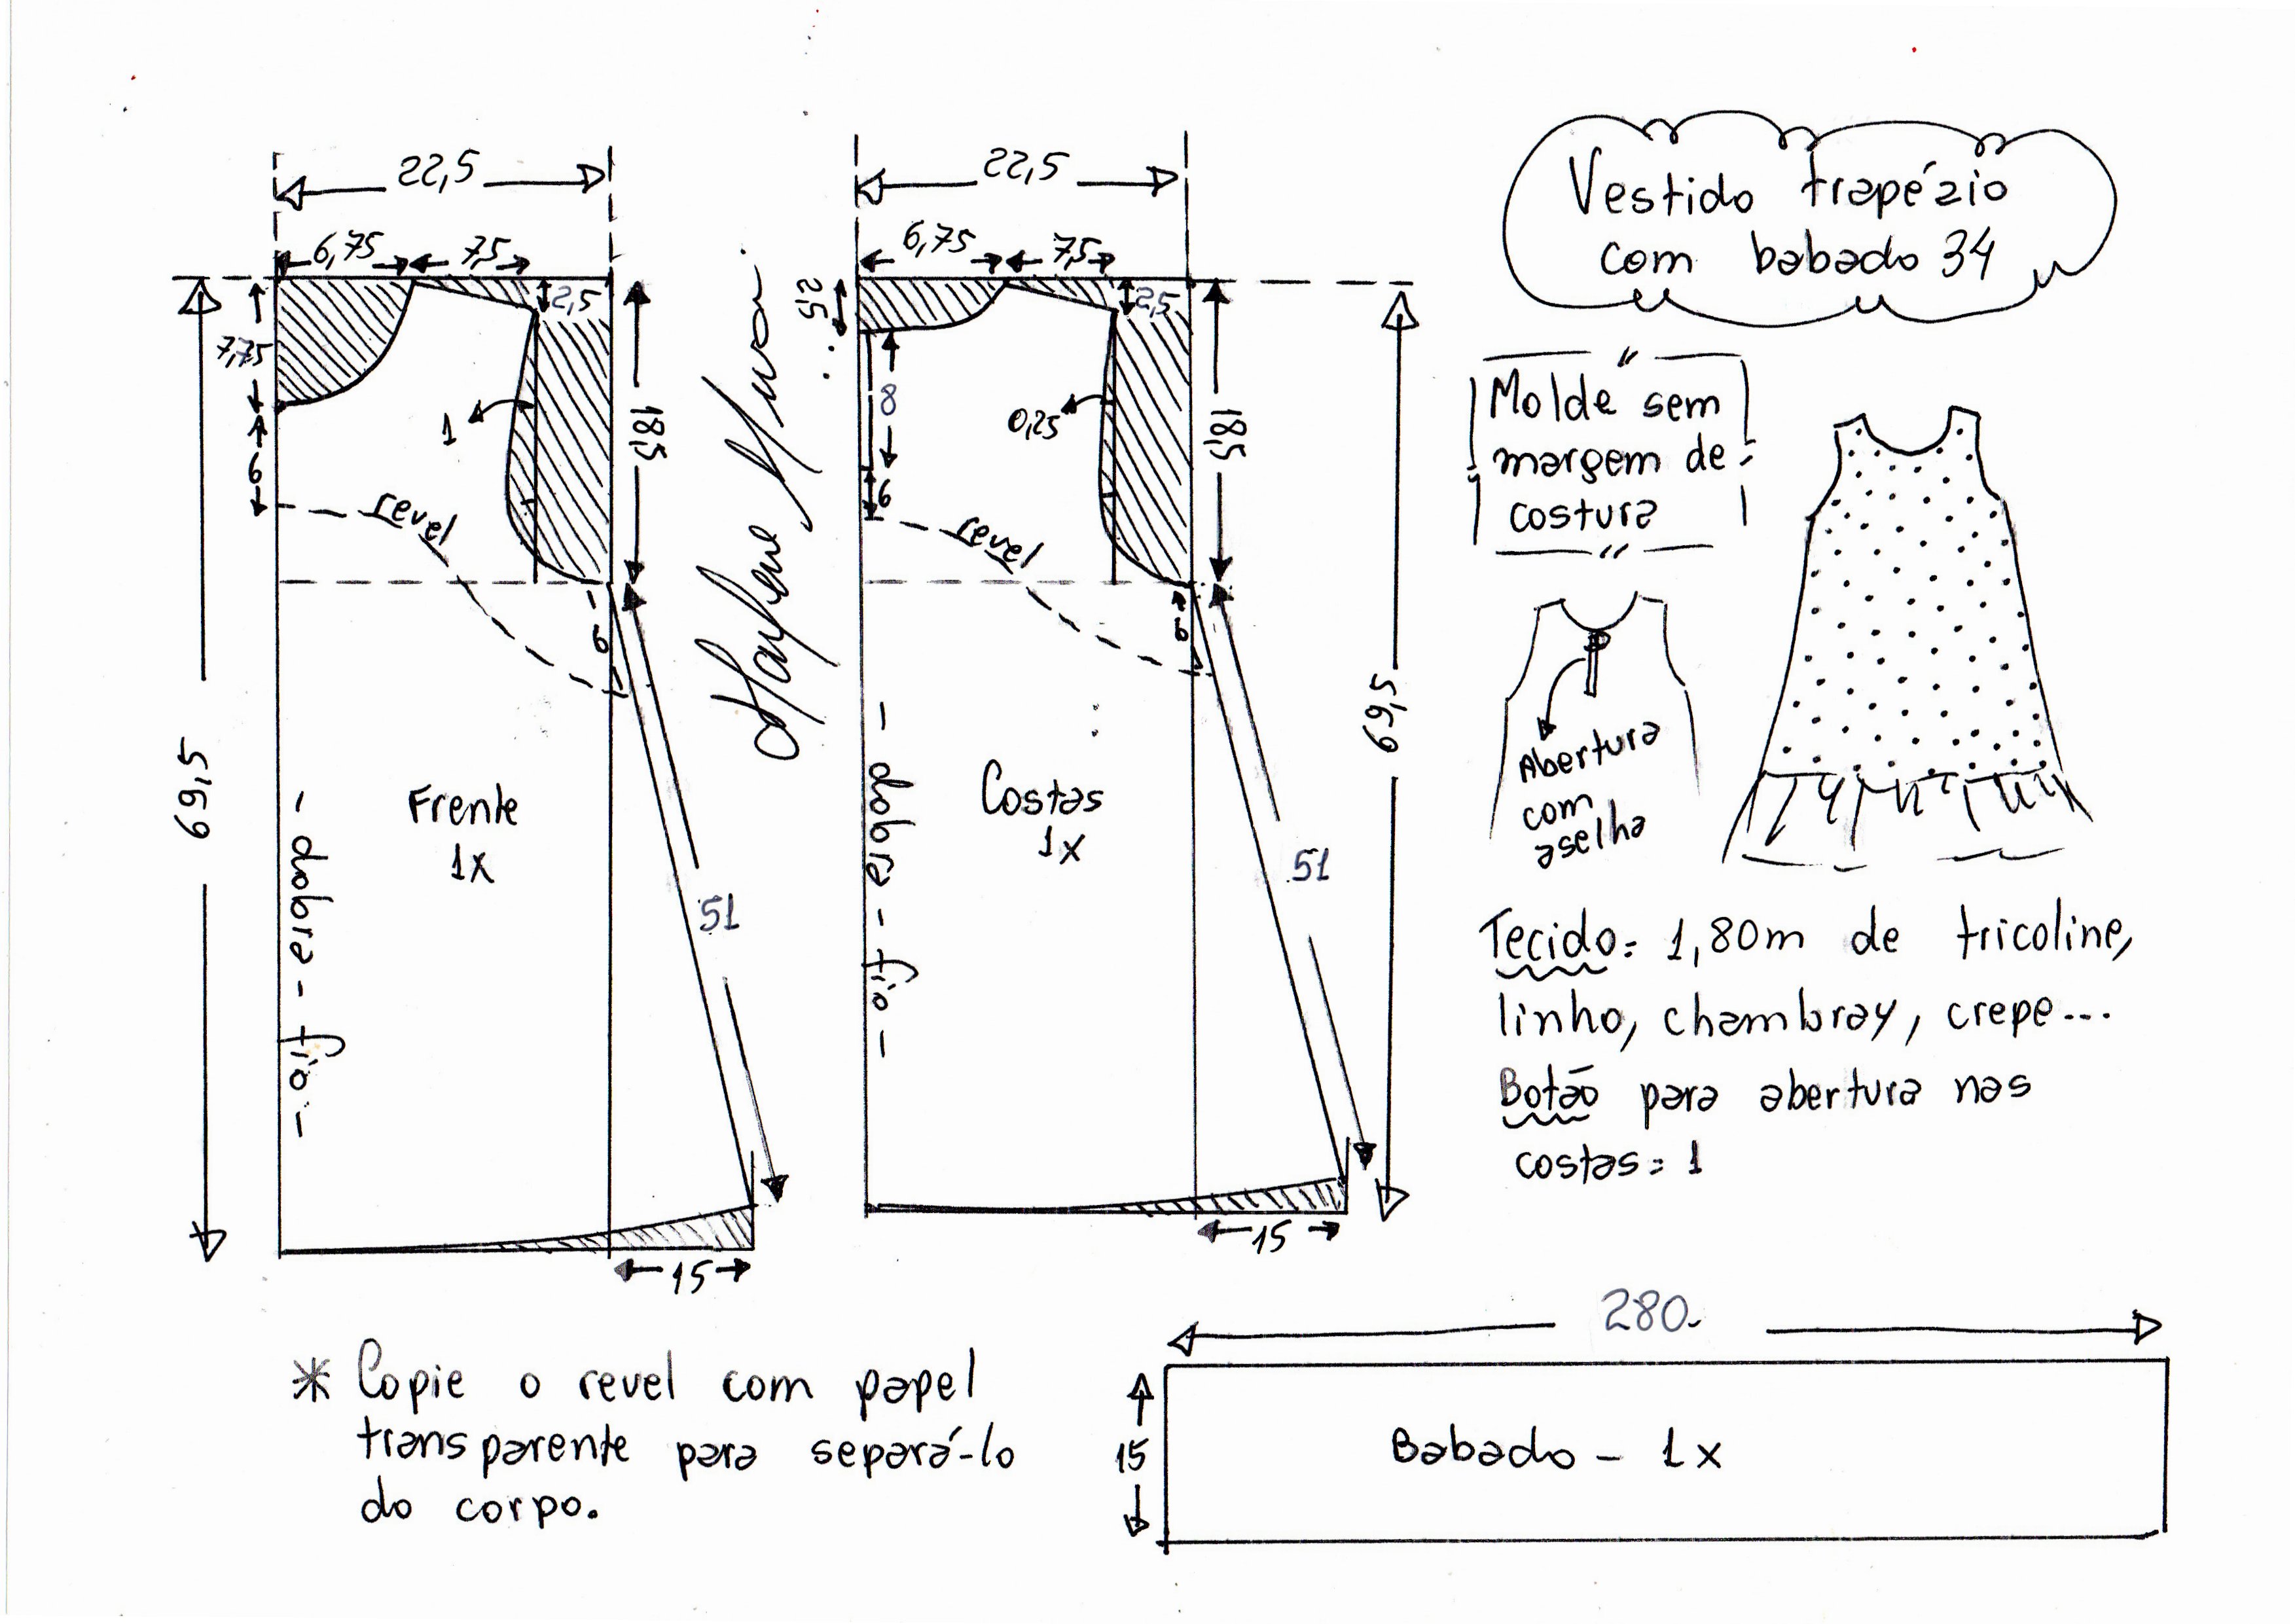 22,5
6,75
7,5
2,5
7,75
6
1
18,5
revel
6
69,5
Frente
1x
- dobra - fio -
51
15
Marlene Mukai
22,5
6,75
7,5
2,5
2,5
8
6
0,25
18,5
revel
6
69,5
Costas
1x
- dobra - fio -
51
15
Vestido trapézio
com babado 34
Molde sem
margem de
costura
Abertura
com
aselha
Tecido= 1,80m de tricoline,
linho, chambray, crepe...
Botão para abertura nas
costas= 1
* Copie o revel com papel
transparente para separá-lo
do corpo.
280
15
Babado - 1x